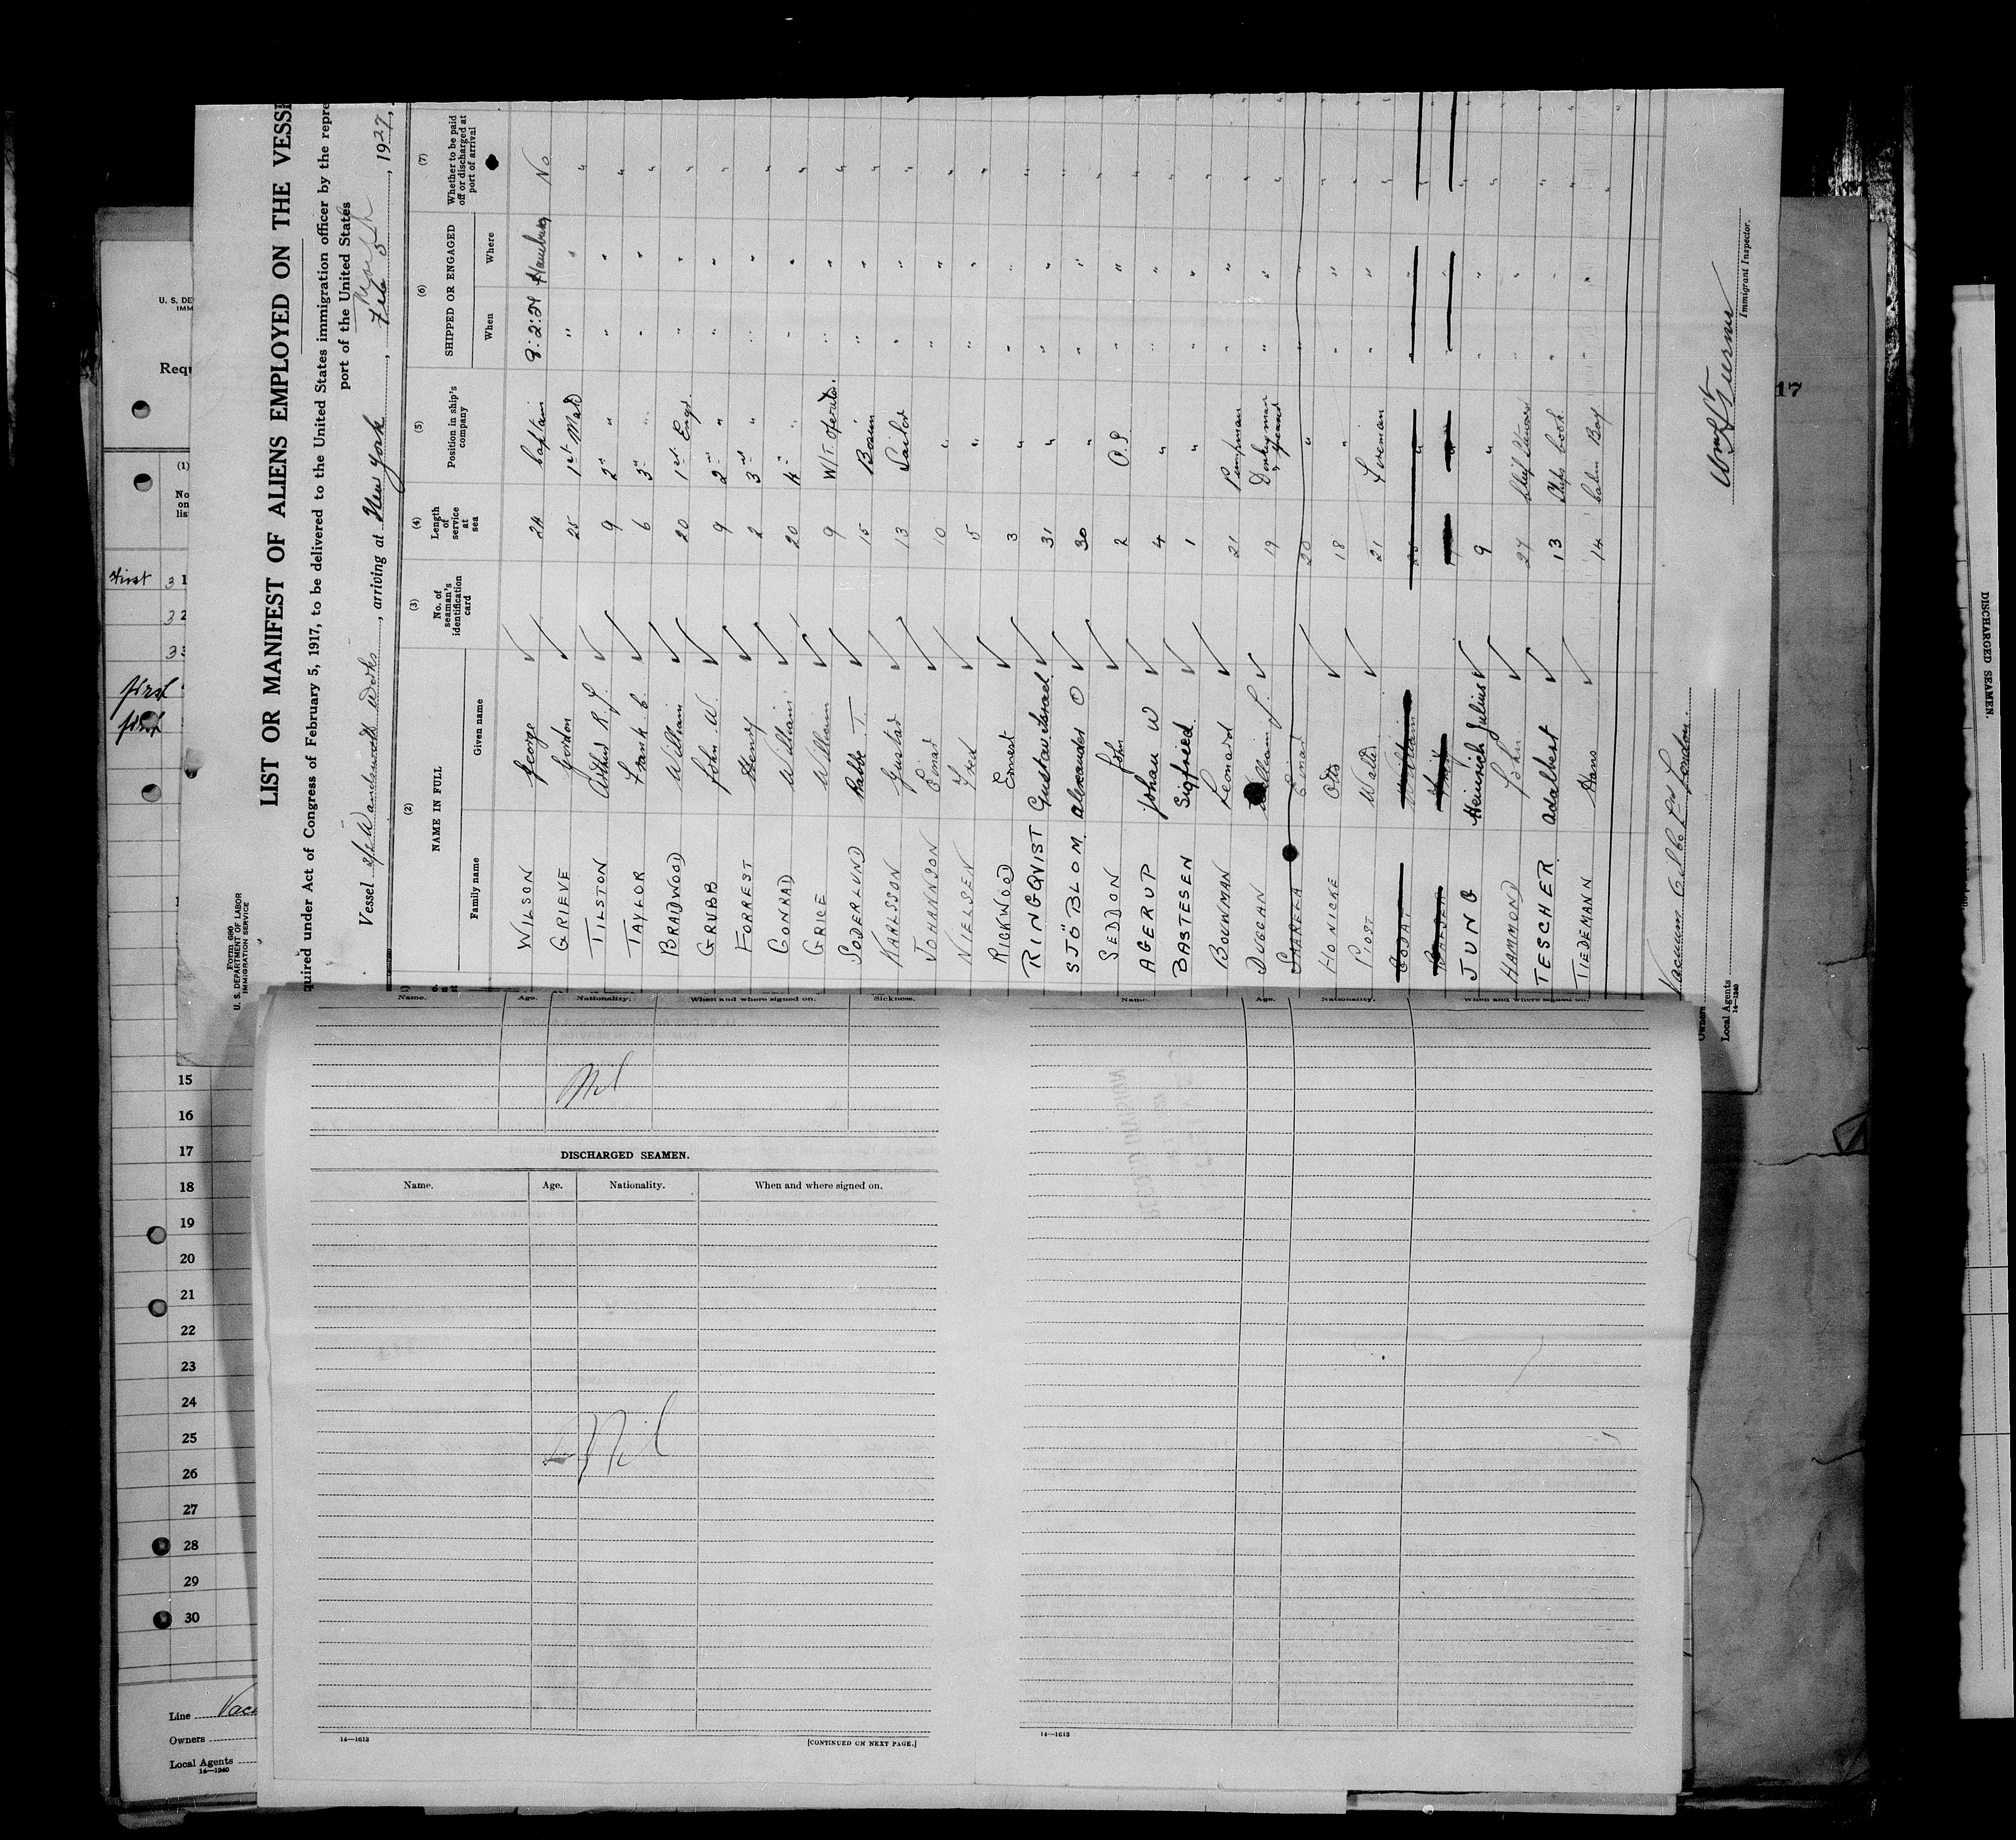 LIST OR MANIFEST OF ALIENS EMPLOYED ON THE VESSE
Form 680
U. S. DEPARTMENT OF LABOR
IMMIGRATION SERVICE
quired under Act of Congress of February 5, 1917, to be delivered to the United States immigration officer by the repre
port of the United States
Vessel S/S Wandsworth Works, arriving at New York, Feb 5th, 1927,
(2) (3) (4) (5) (6) (7)
NAME IN FULL No. of seaman's identification card Length of service at sea Position in ship's company SHIPPED OR ENGAGED Whether to be paid off or discharged at port of arrival
Family name Given name When Where
WILSON George ✓ 24 Captain 8:2:24 Hamburg No
GRIEVE Gordon ✓ 25 1st Mate " " "
TILSTON Arthur R. ✓ 9 2nd " " " "
TAYLOR Frank C. ✓ 6 3rd " " " "
BRAIDWOOD William ✓ 20 1st Engr. " " "
GRUBB John W. ✓ 9 2nd " " " "
FORREST Henry ✓ 2 3rd " " " "
CONRAD William ✓ 20 4th " " " "
GRICE William ✓ 9 W/T Operator " " "
SODERLUND T ✓ 15 Bosun " " "
KARLSSON Gustav ✓ 13 Sailor " " "
JOHANNSON Einar ✓ 10 " " " "
NIELSEN Fred ✓ 5 " " " "
RICKWOOD Ernest ✓ 3 " " " "
RINGQVIST Gustav Israel ✓ 31 " " " "
SJÖBLOM Alexander O ✓ 30 " " " "
SEDDON John ✓ 2 O.S " " "
AGERUP Johan W ✓ 4 " " " "
BASTESEN Sigfried ✓ 1 " " " "
BOUWMAN Leonard ✓ 21 Pumpman " " "
DUGGAN William ✓ 19 Donkeyman " " "
SAARELA Einar 20 " " " "
HONICKE Otto ✓ 18 " " " "
PIOST Walter ✓ 21 Fireman " " "
William
JUNG Heinrich Julius ✓ 9 " " " "
HAMMOND John ✓ 27 Chief Steward " " "
TESCHER Adalbert ✓ 13 Ships Cook " " "
TIEDEMANN Hans ✓ 14 Cabin Boy " " "
Owners
Local Agents
14—1240
Immigrant Inspector.
17
U. S. DE
IMM
Requ
(1)
No
on
lis
First
first
first
15
16
17
18
19
20
21
22
23
24
25
26
27
28
29
30
Line Vac
Owners
Local Agents
14—1240
Name. Age. Nationality. When and where signed on. Sickness.
Nil
DISCHARGED SEAMEN.
Name. Age. Nationality. When and where signed on.
Nil
14—1613 [CONTINUED ON NEXT PAGE.]
Name. Age. Nationality. When and where signed on.
14—1613
DISCHARGED SEAMEN.